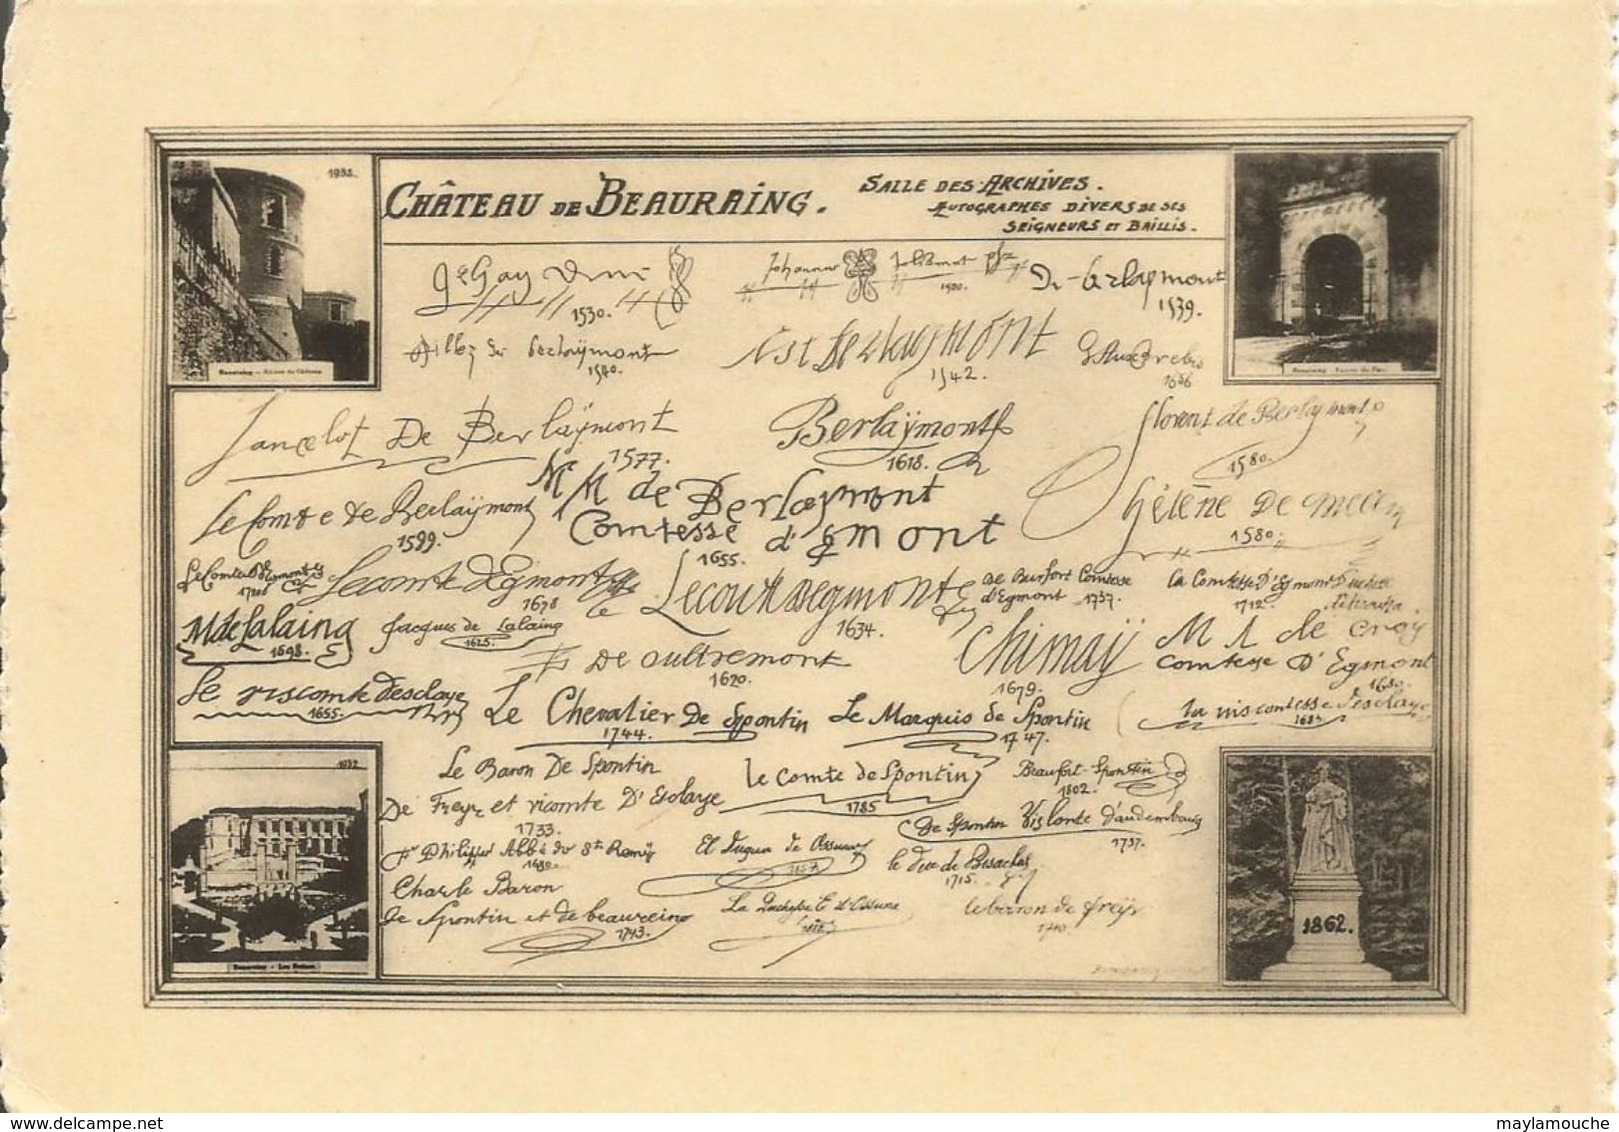 1935.
CHÂTEAU DE BEAURAING.
SALLE DES ARCHIVES.
AUTOGRAPHES DIVERS DE SES
SEIGNEURS ET BAILLIS.
1530.
Johannes
1500.
De Berlaymont
1539.
Beauraing - Ruines du Château
de berlaÿmont
1540.
De Berlaymont
1542.
1686
Beauraing -
Lancelot De Berlaÿmont
1577.
Berlaÿmont
1618.
florent de Berlaymont
1580.
Le Comte de Berlaÿmont
1599.
M M de Berlaymont
Comtesse d'Egmont
1655.
hélène De Melun
1580.
Le Comte d'Egmont
Lecomte d'Egmont
1678
Lecomte degmont
1634.
De Beurfort Comtesse
d'Egmont 1737.
La Comtesse D'Egmont Duchesse
1712.
M de Lalaing
1698.
Jacques de Lalaing
1625.
De oultremont
1620.
Chimaÿ
1679.
M l de croy
comtesse D'Egmont
1680.
Le viscomte desclaye
1655.
Le Chevalier De Spontin
1744.
Le Marquis de Spontin
1747.
La viscontesse d'esclaye
1932
Le Baron De Spontin
De Freyr et vicomte D'Esclaye
1733.
le comte de Spontin
1785
Beaufort-Spontin
1802.
De Spontin Vislonte d'audembourg
1737.
Philippe Abbé de St Remÿ
1680.
El Duque de Ossuna
le duc de
1715.
Charle Baron
de Spontin et de beaureing
1743.
La Duchesse D d'Ossuna
le baron de freÿr
1710
Beauraing - Les Ruines
1862.
maylamouche